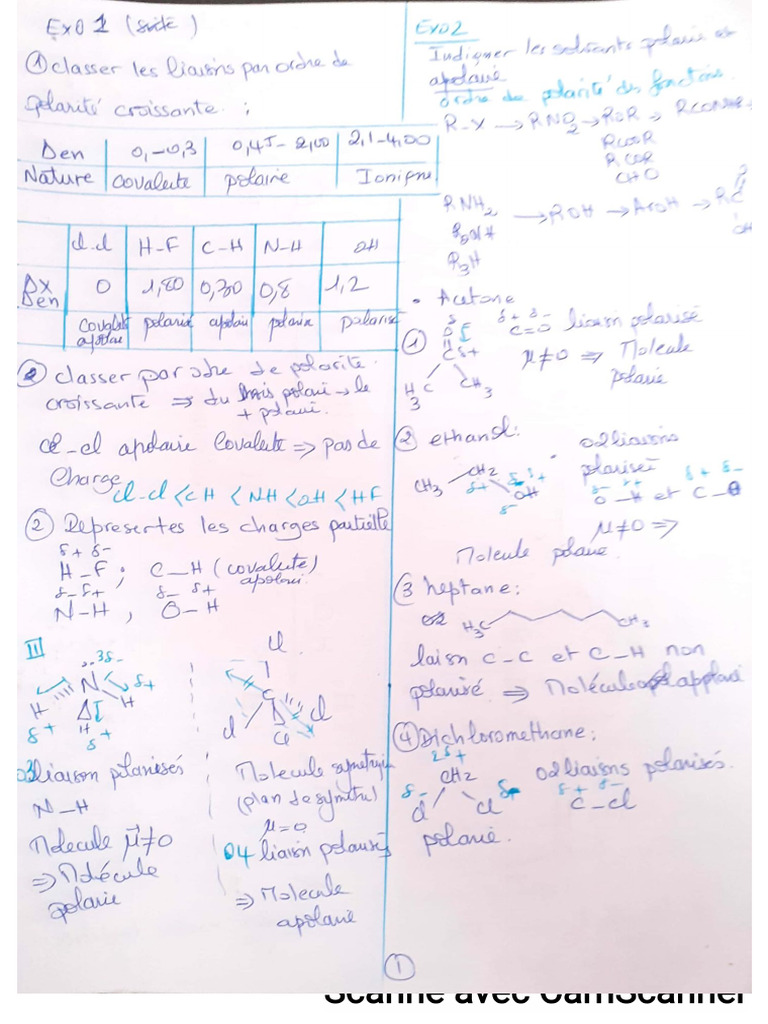 Exo 1 (suite)
① classer les liaisons par ordre de
polarité croissante :
Den | 0,-0,3 | 0,45-2,00 | 2,1-4,00
Nature | covalente | polaire | Ionique
cl-cl | H-F | C-H | N-H | OH
Δx Den | 0 | 1,80 | 0,30 | 0,8 | 1,2
covalente apolaire | polarisé | apolaire | polarisé | polarisé
② classer par ordre de polarité
croissante ⇒ du mois polaire → le
+ polaire.
cl-cl apolaire covalente ⇒ pas de
charge
cl-cl < CH < NH < OH < HF
② Representes les charges partielle
δ+ δ-
H-F ; C-H (covalente)
apolaire.
δ- δ+ δ- δ+
N-H , O-H
III
3δ-
N
H H
δ+ δ+
H
δ+
03 liaison polarisés
N-H
Molecule μ≠0
⇒ Molécule
polaire
cl
C
cl cl
cl
Molecule symetrique
(plan de symetrie)
μ=0
04 liaison polarisés
⇒ Molecule
apolaire
Exo2
Indiquer les solvants polaire et
apolaire
ordre de polarité des fonctions.
R-X → RNO2 → ROR →
RCOOR
RCOR
CHO
RNH2
R3H
→ ROH → ArOH →
• Acetone
① δ+ δ-
C=O liaison polarisé
δ-
O
C δ+
H3C CH3
μ≠0 ⇒ Molecule
polaire
② ethanol:
02 liaisons
polarisés
CH3 CH2 OH
δ+ δ- δ+
δ- δ+ δ+ δ-
O-H et C-O
μ≠0 ⇒
Molecule polaire.
③ heptane:
H3C CH3
laison C-C et C-H non
polarisé ⇒ Molécule appolaire
④ Dichloromethane:
2δ+
CH2
δ- δ-
cl cl
02 liaisons polarisés.
δ+ δ-
C-cl
polaire.
①
Scanné avec CamScanner